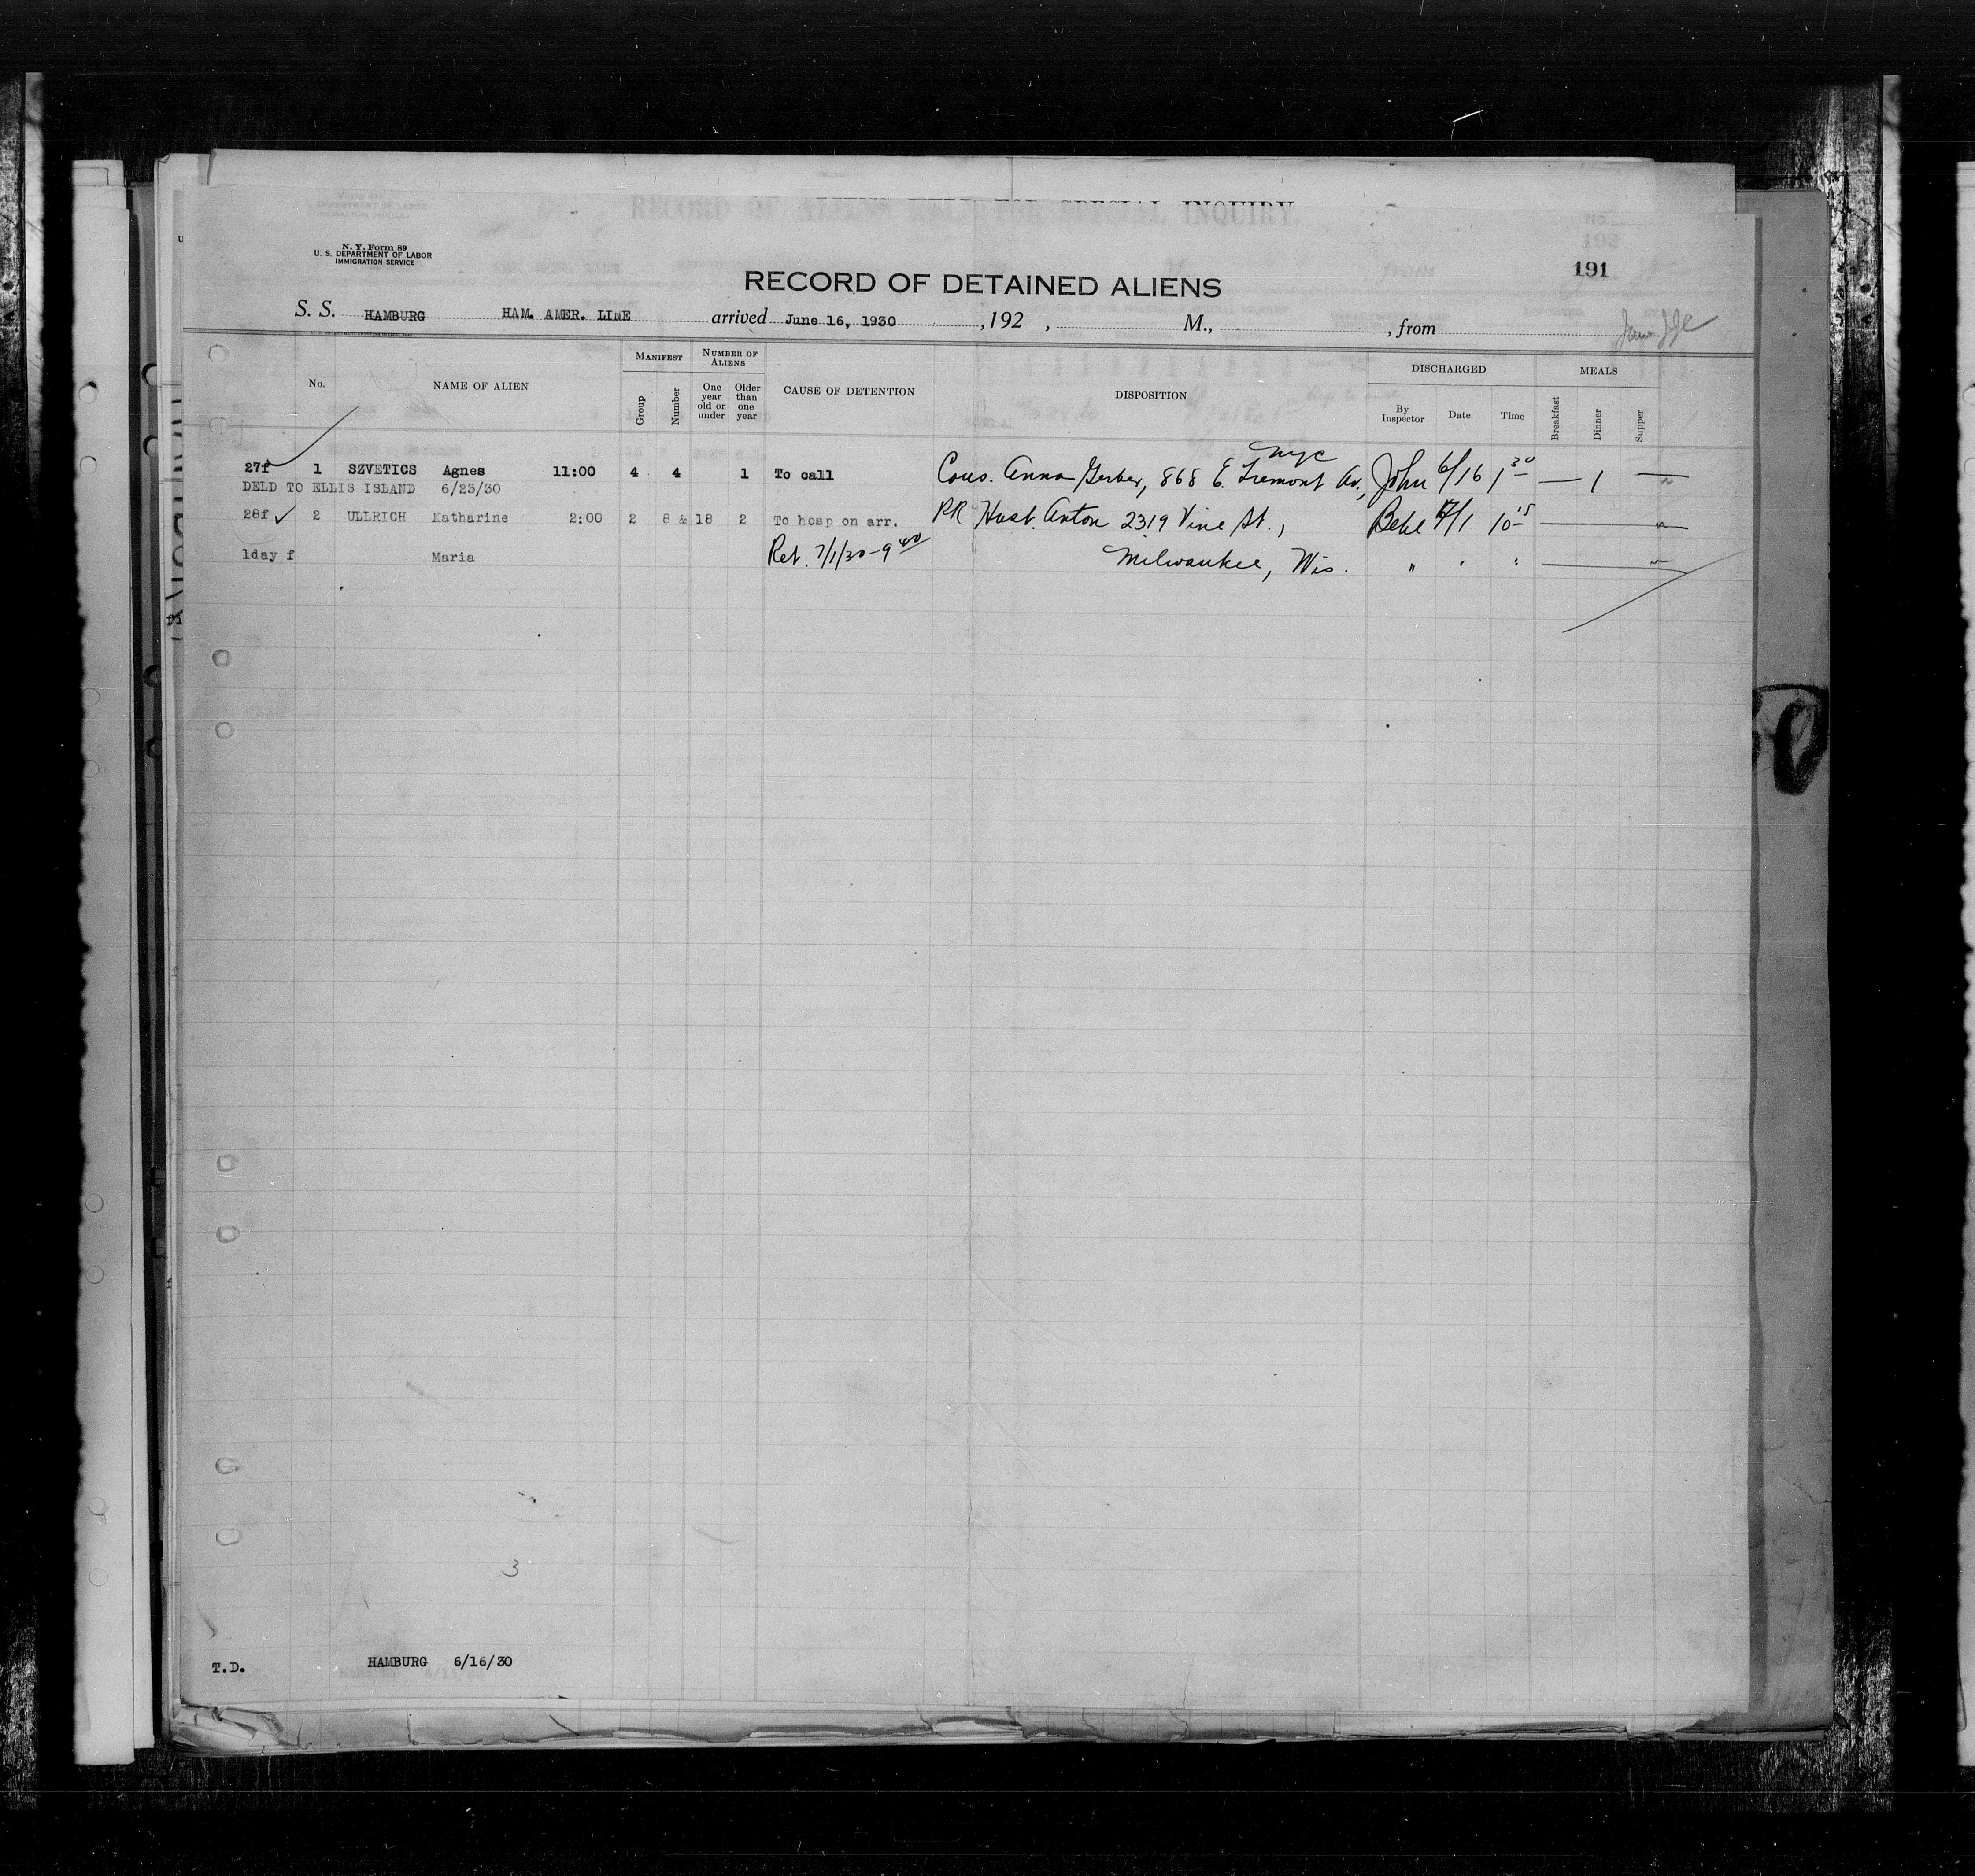 RECORD OF ALIENS HELD FOR SPECIAL INQUIRY.
N. Y. Form 89
U. S. DEPARTMENT OF LABOR
IMMIGRATION SERVICE
191
RECORD OF DETAINED ALIENS
S. S. HAMBURG HAM. AMER. LINE arrived June 16, 1930 , 192 , M., , from
MANIFEST NUMBER OF ALIENS DISCHARGED MEALS
No. NAME OF ALIEN Group Number One year old or under Older than one year CAUSE OF DETENTION DISPOSITION By Inspector Date Time Breakfast Dinner Supper
nyc
27f 1 SZVETICS Agnes 11:00 4 4 1 To call Cous. Anna Gerber, 868 E. Tremont Av., John 6/16 1 30 — 1 —
DELD TO ELLIS ISLAND 6/23/30
28f ✓ 2 ULLRICH Katharine 2:00 2 8 & 18 2 To hosp on arr. RR Husb. Anton 2319 Vine St., 7/1 10 15 —
1day f Maria Ret. 7/1/30-9 40 Milwaukee, Wis. " " " —
3
T.D. HAMBURG 6/16/30